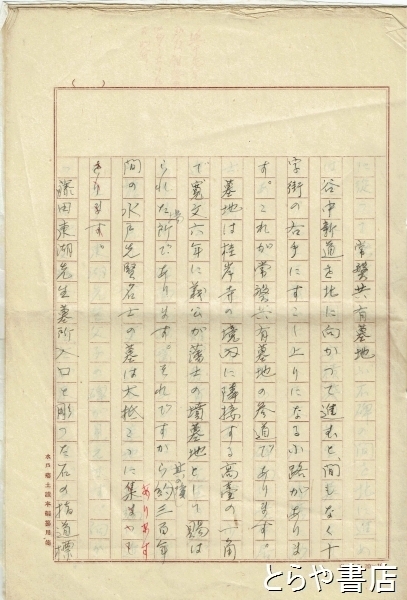 常磐共有墓地
谷中新道を北に向かつて進むと、間もなく十
字街の右手にすこし上りになる小路がありま
す。これが常磐共有墓地の参道であります。
墓地は桂岸寺の境内に隣接する高臺の一角
で寛文六年に義公が藩士の墳墓地として賜は
られた所であります。それですから約三百年
間の水戸先賢名士の墓は大抵
に集まつて
ありますきります。
藤田東湖先生墓所入口と彫つた石の指道標
水戸郷土讀本編纂用紙
とらや書店